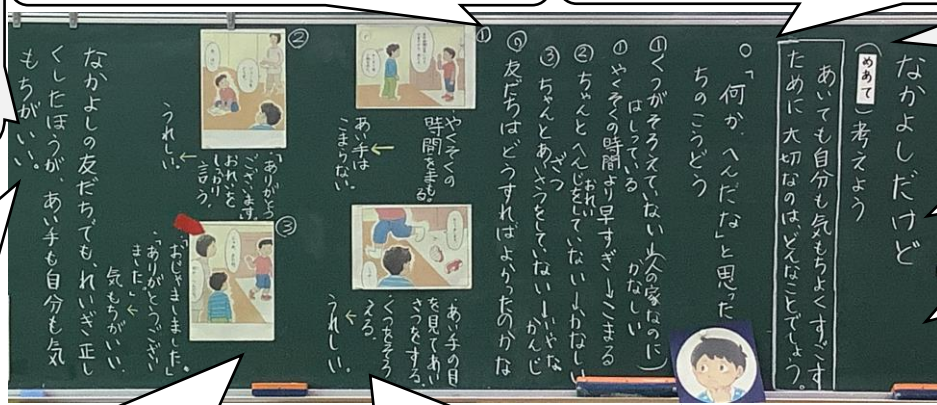 なかよしだけど
(めあて)考えよう
あいても自分も気もちよくすごす
ために大切なのは、どんなことでしょう。
○「何か、へんだな」と思った
ちのこうどう
①くつがそろえていない(人の家なのに)
はしっている
かなしい
①やくそくの時間より早すぎ→こまる
おれい
②ちゃんとへんじをしていない→かなしい
ざつ
いやな
③ちゃんとあいさつをしていない→かんじ
友だちはどうすればよかったのかな
①
やくそくの
時間をまもる。
あい手は
こまらない。
あい手の目
を見てあい
さつをする。
くつをそろ
える。
うれしい。
②
「ありがとう
ございます。」
おれいを
しっかり
言う。
うれしい。
③
「おじゃましました」
「ありがとうござい
ました。」
気もちがいい。
なかよしの友だちでも、れいぎ正し
くしたほうが、あい手も自分も気
もちがいい。